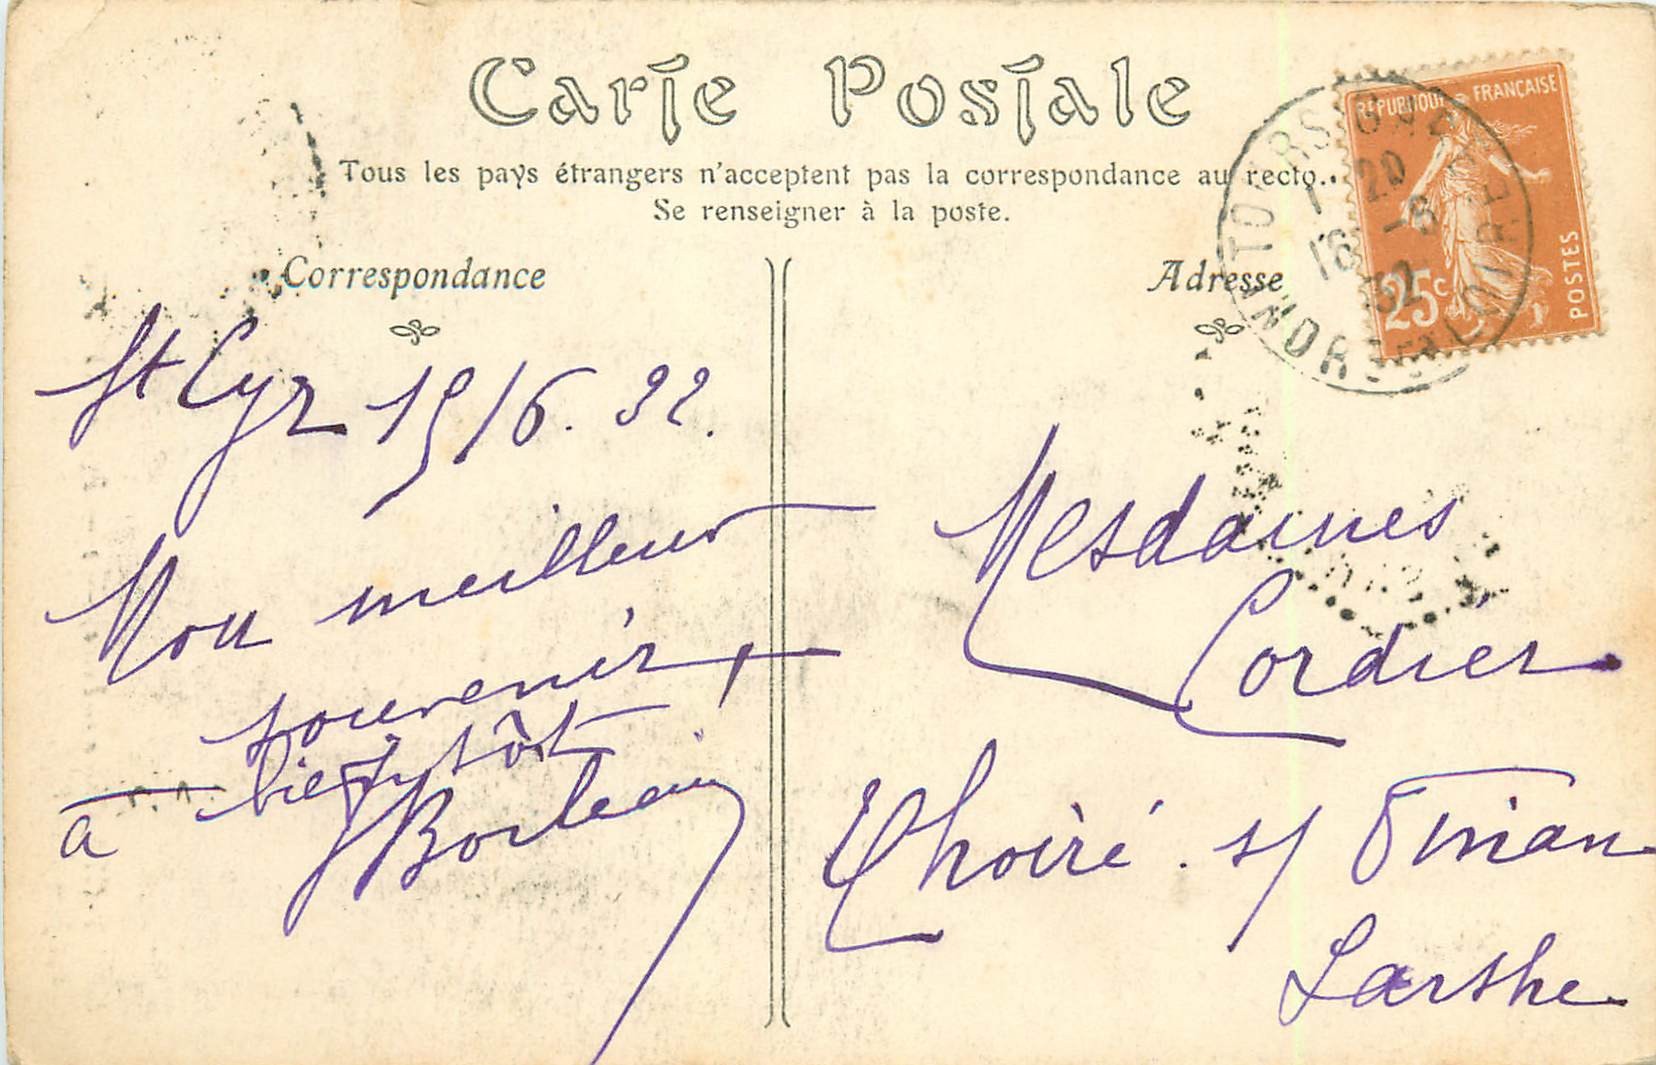 Carte Postale
Tous les pays étrangers n'acceptent pas la correspondance au recto.
Se renseigner à la poste.
Correspondance
Adresse
RÉPUBLIQUE FRANÇAISE
25c
POSTES
TOURS
1 20
16 -6
32
INDRE LOIRE
St Cyr 15/6. 32.
Mon meilleur
souvenir,
à bientôt
Mesdames
Cordier
Thoiré. s/ Dinan
Sarthe